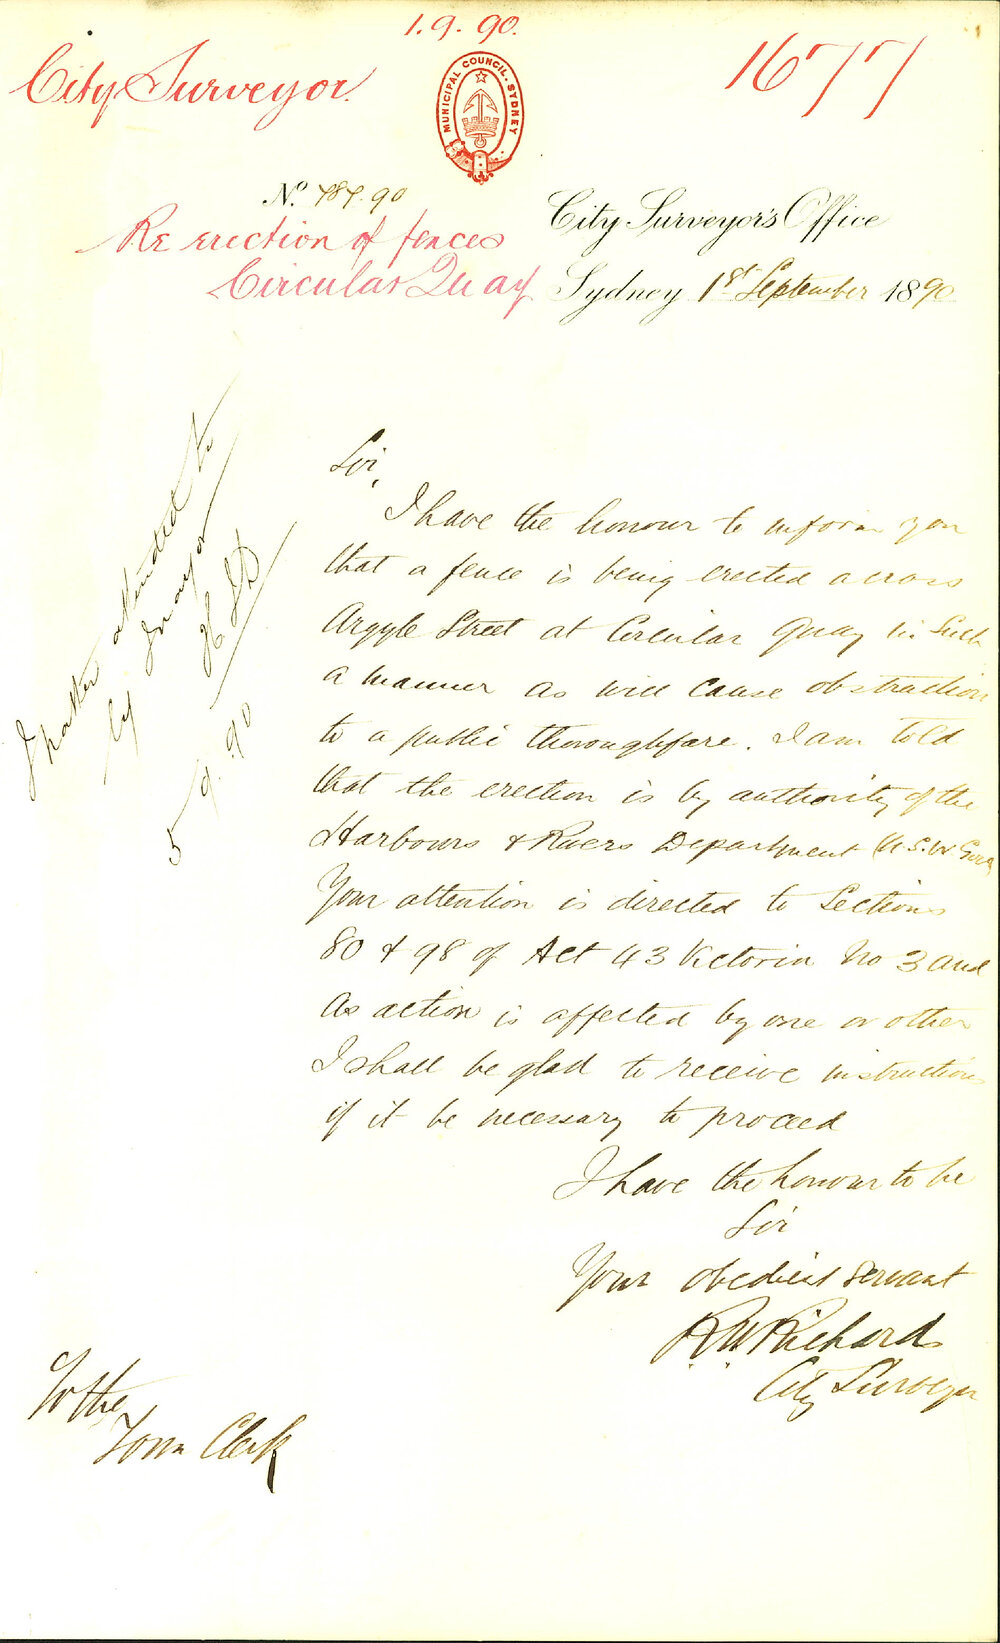 1.9.90.
City Surveyor.
1677
MUNICIPAL COUNCIL. SYDNEY
No. 787.90
Re erection of fences
Circular Quay
City Surveyor's Office
Sydney 1st September 1890
Matter attended to
by Mayor
5/9.90
Sir,
I have the honour to inform you
that a fence is being erected across
Argyle Street at Circular Quay in such
a manner as will cause obstruction
to a public thoroughfare. I am told
that the erection is by authority of the
Harbours & Rivers Department (N.S.W Govt)
Your attention is directed to Sections
80 & 98 of Act 43 Victoria No 3 and
as action is affected by one or other
I shall be glad to receive instructions
if it be necessary to proceed
I have the honour to be
Sir
Your obedient servant
R W Richards
City Surveyor
To the
Town Clerk